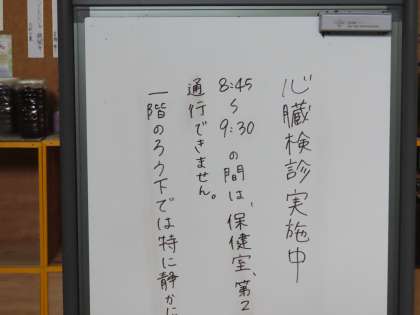 心臓検診実施中
8:45～9:30の間は、保健室、第2
通行できません。
一階のろう下では特に静かに